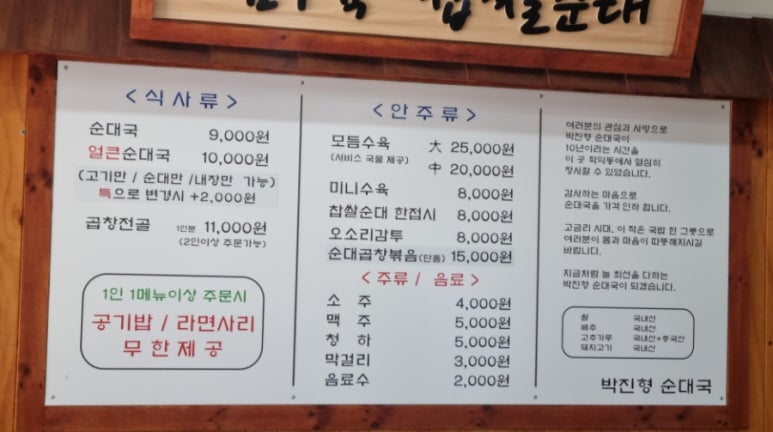 찹쌀순대
<식사류>
순대국 9,000원
얼큰순대국 10,000원
(고기만 / 순대만 /내장만 가능)
특으로 변경시 +2,000원
곱창전골 1인분 11,000원
(2인이상 주문가능)
1인 1메뉴이상 주문시
공기밥 / 라면사리
무한제공
<안주류>
모듬수육 大 25,000원
(서비스 국물 제공) 中 20,000원
미니수육 8,000원
찹쌀순대 한접시 8,000원
오소리감투 8,000원
순대곱창볶음(단품) 15,000원
<주류 / 음료>
소주 4,000원
맥주 5,000원
청하 5,000원
막걸리 3,000원
음료수 2,000원
여러분의 관심과 사랑으로
박진형 순대국이
10년이라는 시간을
이 곳 학익동에서 열심히
장사할 수 있었습니다.
감사하는 마음으로
순대국을 가격 인하 합니다.
고금리 시대, 이 작은 국밥 한 그릇으로
여러분이 몸과 마음이 따뜻해지시길
바랍니다.
지금처럼 늘 최선을 다하는
박진형 순대국이 되겠습니다.
쌀 국내산
배추 국내산
고추가루 국내산+중국산
돼지고기 국내산
박진형 순대국